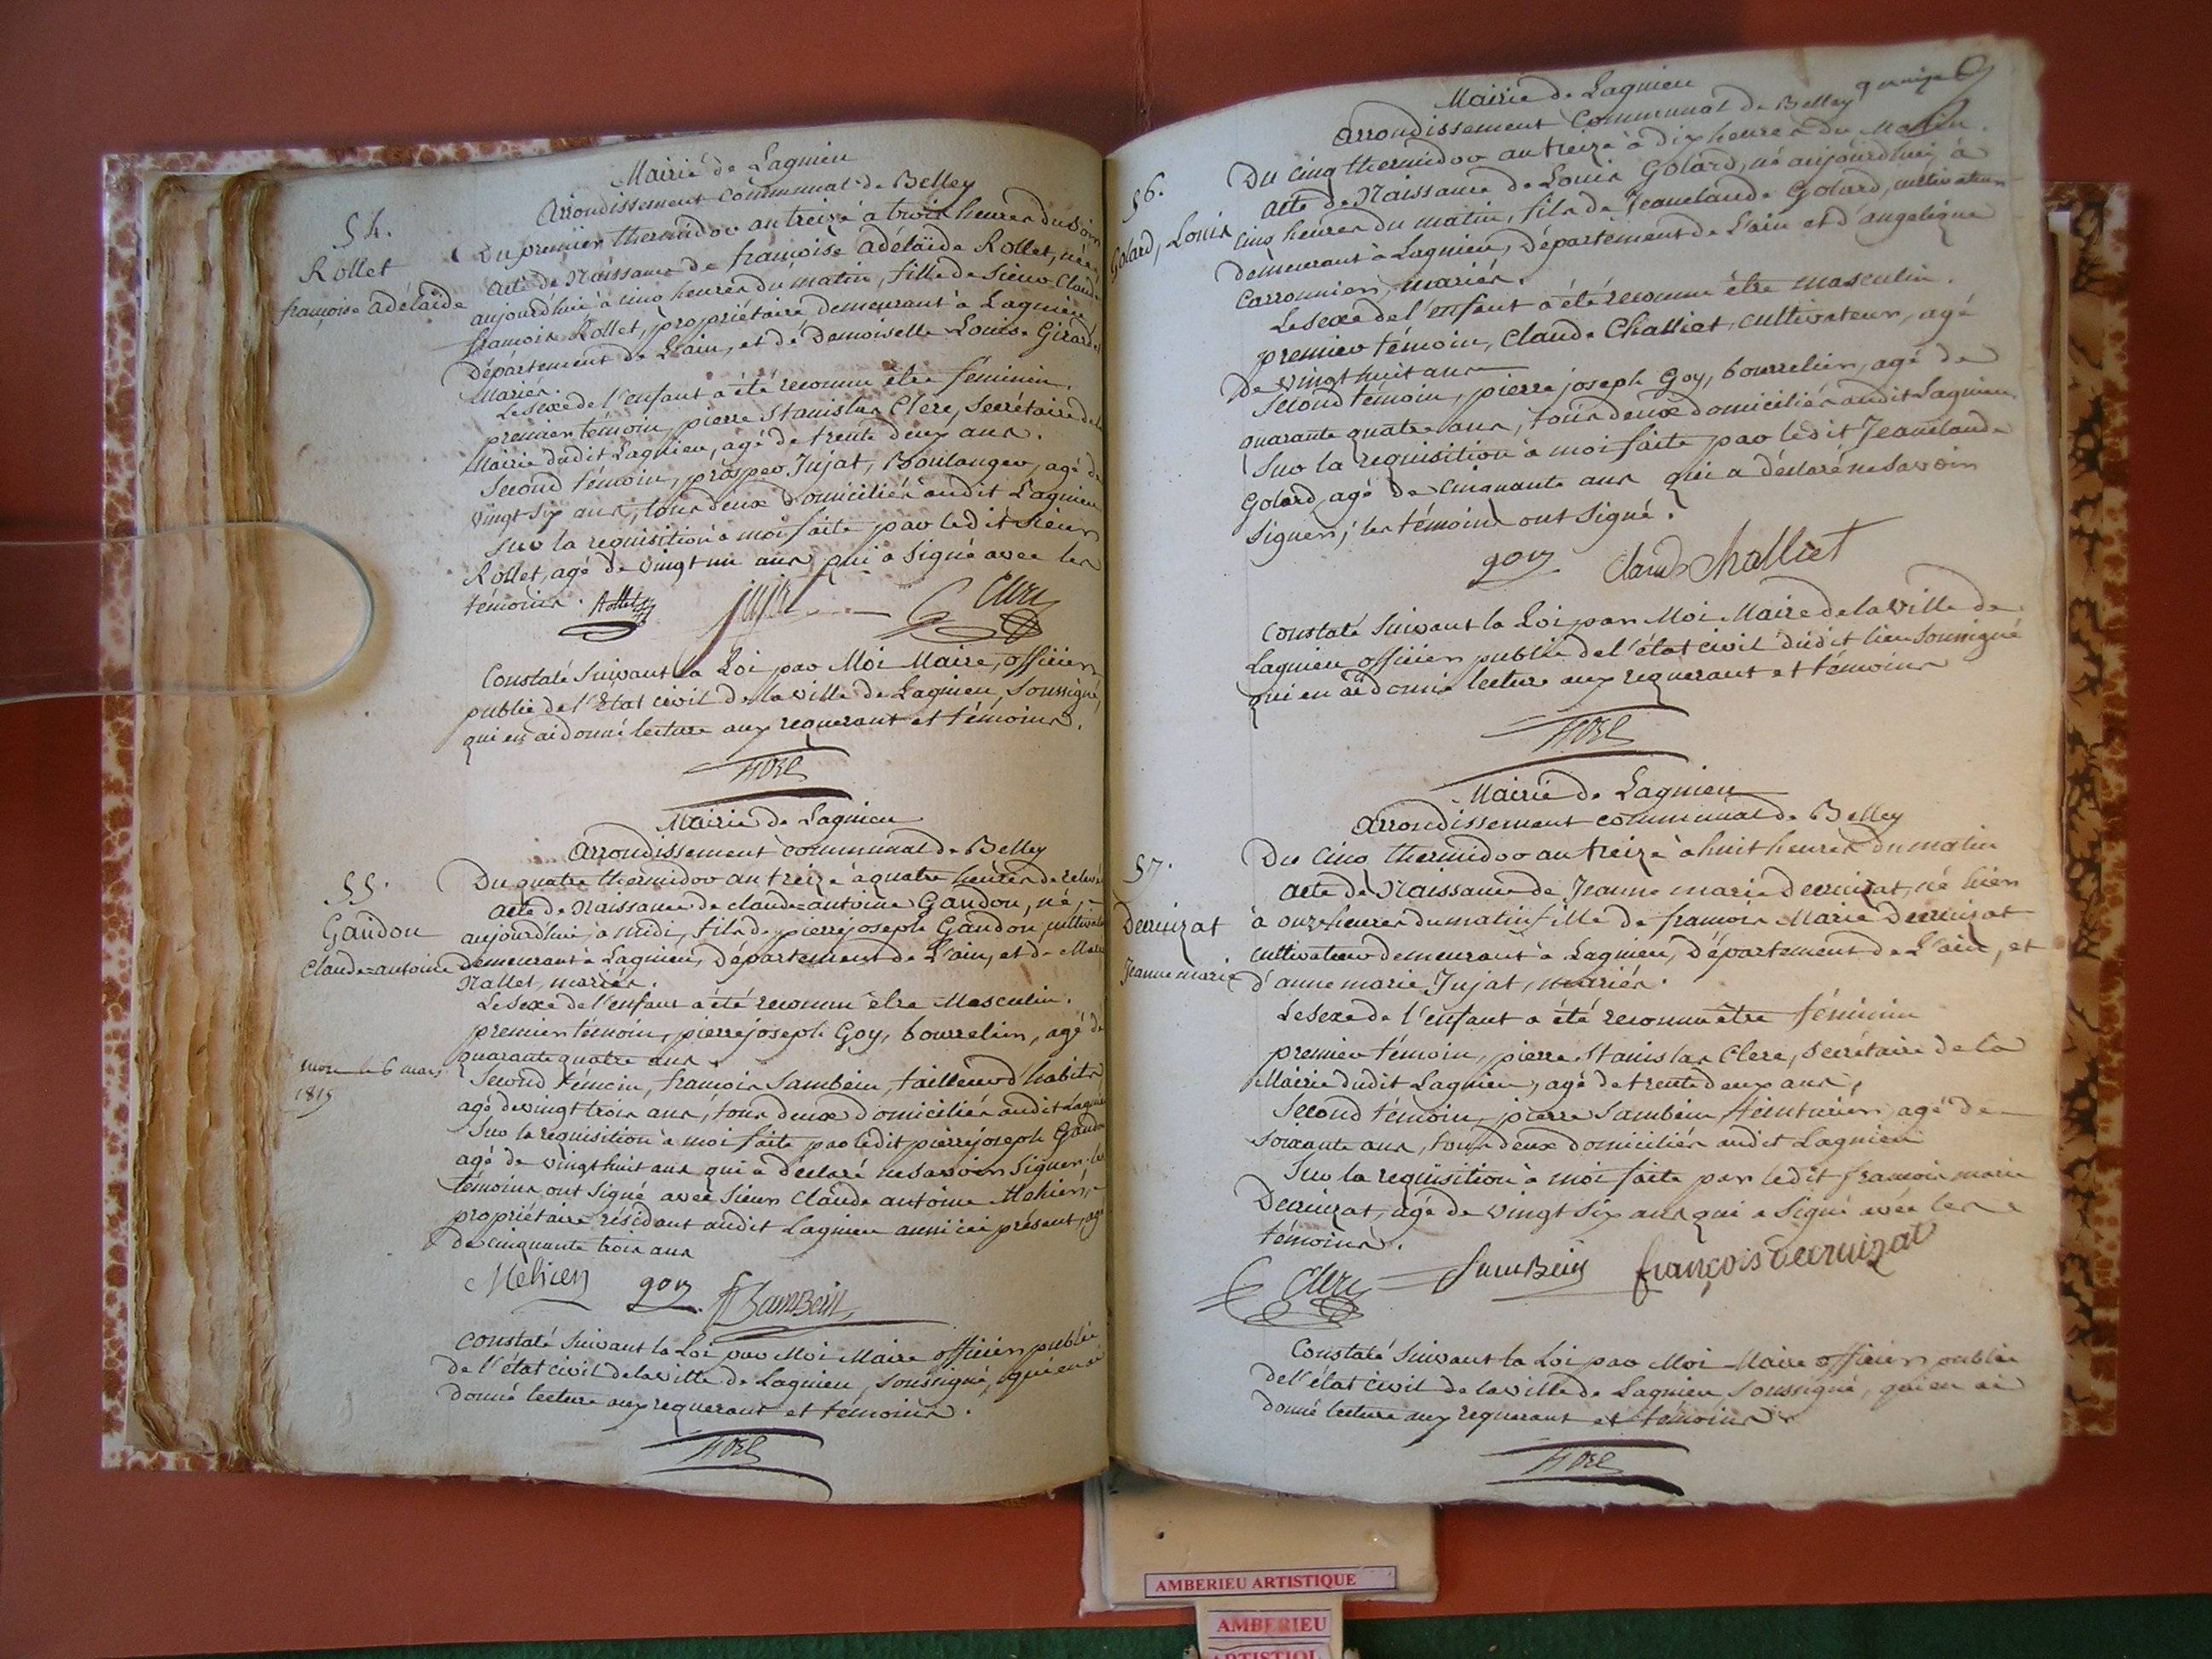 Mairie de Lagnieu
Arrondissement Communal de Belley
54.
Rollet
françoise adélaïde
Du premier thermidor an treize à trois heures du Soir
acte de Naissance de françoise adélaïde Rollet, née
aujourd'hui à cinq heures du matin, fille de Sieur Claude
françois Rollet, propriétaire demeurant à Lagnieu,
Département de L'ain, et de Demoiselle Louise Girard
Mariés.
Le sexe de l'enfant a été reconnu être féminin.
premier témoin, pierre Stanislas Clerc, Secrétaire de la
Mairie dudit Lagnieu, agé de trente deux ans.
Second témoin, prosper Jujat, Boulanger, agé de
vingt six ans, tous deux domiciliés audit Lagnieu
Sur la requisition à moi faite par ledit Sieur
Rollet, agé de vingt un ans qui a Signé avec les
témoins. Rollet Jujat Clerc
Constaté Suivant la Loi par Moi Maire, officier
public de l'Etat civil de la ville de Lagnieu, Soussigné,
qui en ai donné lecture aux requerant et témoins.
Mairie de Lagnieu
Arrondissement communal de Belley
55.
Gandon
Claude=antoine
mort le 6 mars
1815
Du quatre thermidor an treize à quatre heures de relevée
acte de Naissance de claude=antoine Gandon, né,
aujourd'hui, à midi, fils de pierre joseph Gandon, cultivateur
Demeurant à Lagnieu, Département de L'ain, et de Marie
Nallet, mariés.
Le sexe de l'enfant a été reconnu être Masculin.
premier témoin, pierre joseph Goy, bourrelier, agé de
quarante quatre ans.
Second témoin, françois Sambein, tailleur d'habits
agé de vingt trois ans, tous deux domiciliés audit Lagnieu
Sur la requisition à moi faite par ledit pierre joseph Gandon
agé de vingt huit ans qui a déclaré ne savoir signer. les
témoins ont signé avec Sieur Claude antoine Mehier,
propriétaire résidant audit Lagnieu aussi ici présent, agé
de cinquante trois ans
Mehier goy Sambein
Constaté Suivant la Loi par Moi Maire officier public
de l'état civil de la ville de Lagnieu, soussigné, qui en ai
donné lecture aux requerant et témoins.
Mairie de Lagnieu
Arrondissement Communal de Belley
56.
Golard, Louis
Du cinq thermidor an treize à dix heures du Matin.
acte de Naissance de Louis Golard, né aujourd'hui à
cinq heures du matin, fils de Jeanclaude Golard, cultivateur
demeurant à Lagnieu, Département de L'ain et d'angelique
Carronnier, mariés.
Le sexe de l'enfant a été reconnu être masculin.
premier témoin, Claude Challiet, cultivateur, agé
de vingt huit ans
Second témoin, pierre joseph Goy, bourrelier, agé de
quarante quatre ans, tous deux domiciliés audit Lagnieu.
Sur la requisition à moi faite par ledit Jeanclaude
Golard agé de cinquante ans qui a déclaré ne savoir
Signer; les témoins ont Signé.
goy Claude Challiet
Constaté Suivant la Loi par Moi Maire de la ville de
Lagnieu officier public de l'état civil dudit lieu Soussigné
qui en ai donné lecture aux requerant et témoins
Mairie de Lagnieu
Arrondissement communal de Belley
57.
Decruizat
Jeanne marie
Du Cinq thermidor an treize à huit heures du matin
acte de Naissance de Jeanne marie Decruizat, né hier
à onze heures du matin fille de françois Marie Decruizat
cultivateur demeurant à Lagnieu, Département de L'ain, et
d'anne marie Jujat, mariés.
Le sexe de l'enfant a été reconnu être féminin
premier témoin, pierre Stanislas Clerc, Secrétaire de la
Mairie dudit Lagnieu, agé de trente deux ans,
Second témoin, pierre Sambein teinturier, agé de
soixante ans, tous deux domiciliés audit Lagnieu
Sur la requisition à moi faite par ledit françois marie
Decruizat, agé de vingt six ans qui a Signé avec les
témoins.
Clerc SamBein françois decruizat
Constaté Suivant la Loi par Moi Maire officier public
de l'état civil de la ville de Lagnieu Soussigné, qui en ai
donné lecture aux requerant et témoins.
AMBERIEU ARTISTIQUE
AMBERIEU